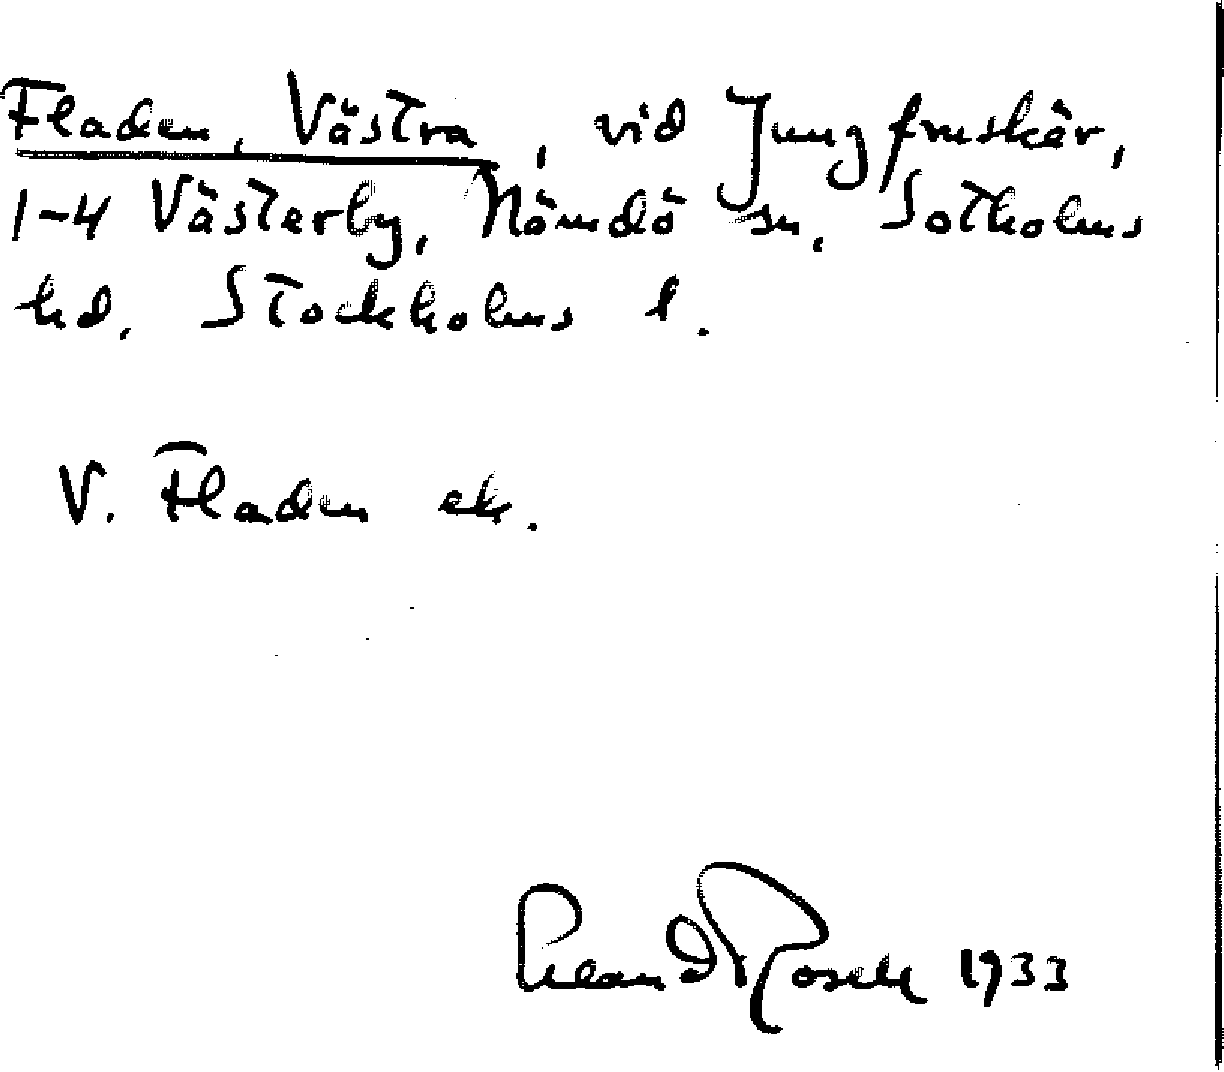 Fladen, Västra, vid Jungfruskär,
1-4 Västerby, Nämdö sn, Sotholms
hd, Stockholms l.
V. Fladen ek.
1933